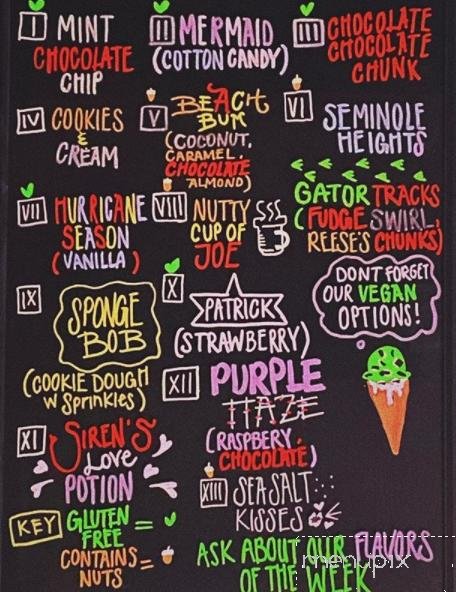 I MINT
CHOCOLATE
CHIP
II MERMAID
(COTTON CANDY)
III CHOCOLATE
CHOCOLATE
CHUNK
IV COOKIES
&
CREAM
V BEACH
BUM
(COCONUT,
CARAMEL,
CHOCOLATE
ALMOND)
VI SEMINOLE
HEIGHTS
GATOR TRACKS
(FUDGE SWIRL,
REESE'S CHUNKS)
VII HURRICANE
SEASON
(VANILLA)
VIII NUTTY
CUP OF
JOE
IX SPONGE
BOB
(COOKIE DOUGH
W SPRINKLES)
X PATRICK
(STRAWBERRY)
DONT FORGET
OUR VEGAN
OPTIONS!
XI SIREN'S
LOVE
POTION
XII PURPLE
HAZE
(RASPBERY,
CHOCOLATE)
XIII SEA SALT
KISSES
KEY GLUTEN
FREE =
CONTAINS =
NUTS
ASK ABOUT OUR FLAVORS
OF THE WEEK
menupix